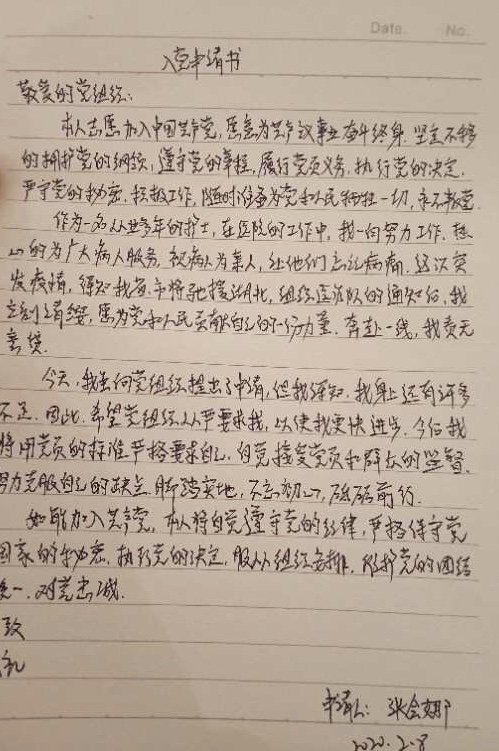 Date. No.
入党申请书
敬爱的党组织:
本人志愿加入中国共产党,愿意为共产主义事业奋斗终身.坚定不移
的拥护党的纲领,遵守党的章程,履行党员义务,执行党的决定,
严守党的秘密,积极工作,随时准备为党和人民牺牲一切,永不叛党.
作为一名从业多年的护士,在医院的工作中,我一向努力工作.热
心的为广大病人服务,视病人为亲人,让他们忘记病痛.这次突
发疫情,得知我省市将驰援湖北,组织医疗队的通知后,我
立刻请缨,愿为党和人民贡献自己的一份力量.奔赴一线,我责无
旁贷.
今天,我虽向党组织提出了申请,但我深知,我身上还有许多
不足.因此,希望党组织从严要求我,以使我更快进步.今后我
将用党员的标准严格要求自己,自觉接受党员和群众的监督,
努力克服自己的缺点.脚踏实地,不忘初心,砥砺前行.
如能加入共产党,本人将自觉遵守党的纪律,严格保守党
国家的秘密,执行党的决定,服从组织安排,维护党的团结
统一.对党忠诚.
致
礼
申请人:张会娜
2020.2.8